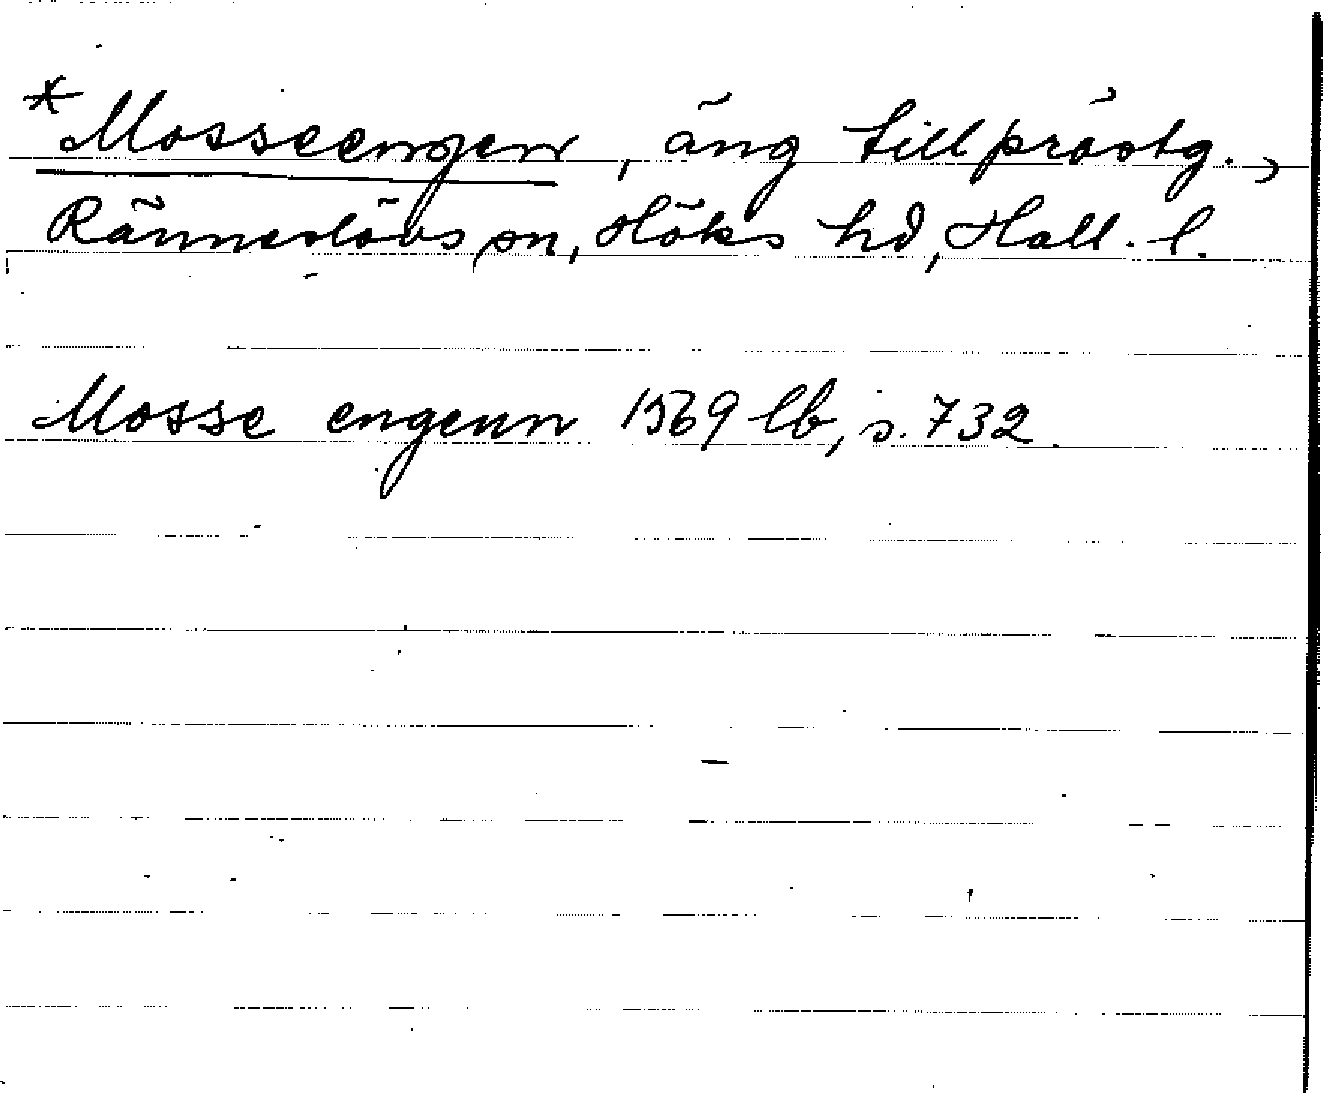 *Mosseengen, äng till prästg.,
Ränneslövs sn, Höks hd, Hall. l.
Mosse engenn 1569 lb, s. 732.